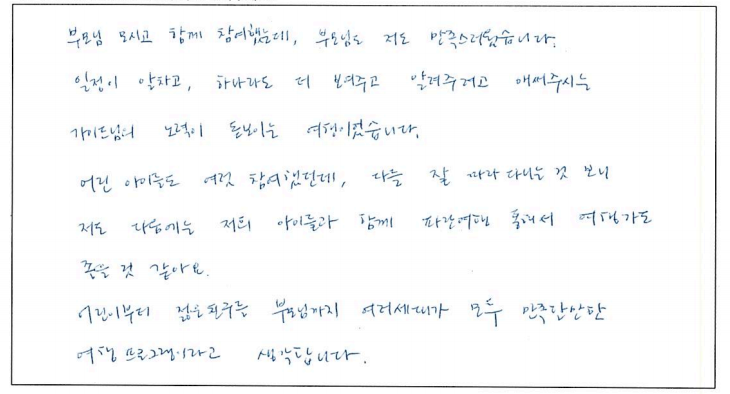 부모님 모시고 함께 참여했는데, 부모님도 저도 만족스러웠습니다.
일정이 알차고, 하나라도 더 보여주고 알려주려고 애써주시는
가이드님의 노력이 돋보이는 여행이었습니다.
어린 아이들도 여럿 참여했던데, 다들 잘 따라 다니는 것 보니
저도 다음에는 저희 아이들과 함께 파란여행 통해서 여행가도
좋을 것 같아요.
어린이부터 젊은친구들 부모님까지 여러세대가 모두 만족할만한
여행 프로그램이라고 생각합니다.